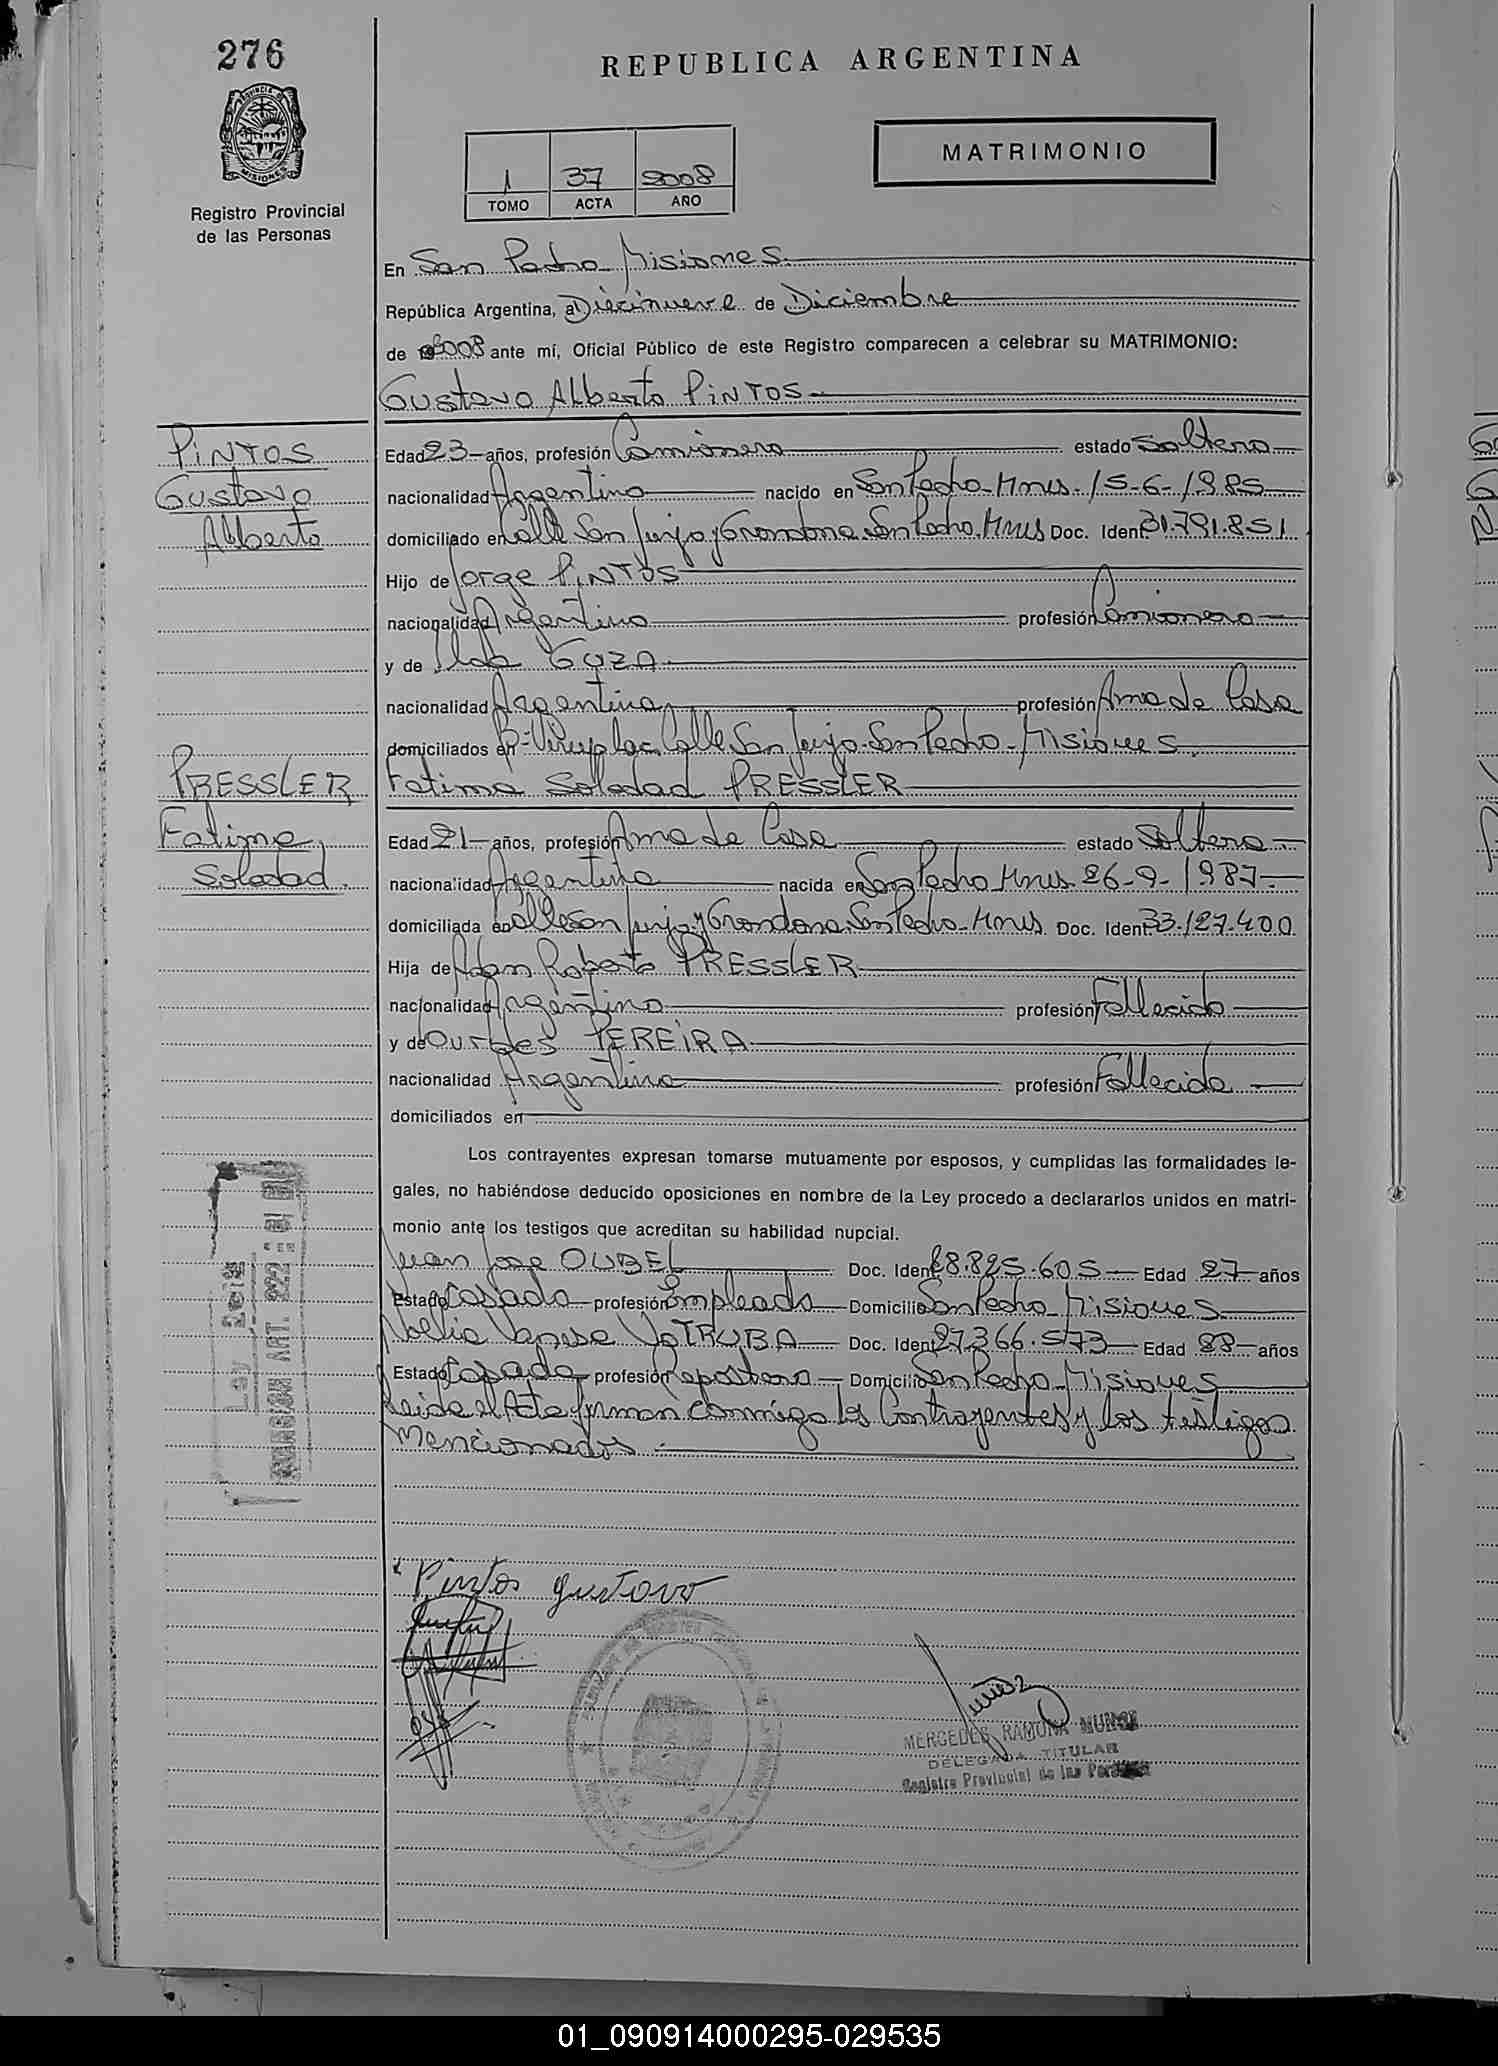 276
REPUBLICA ARGENTINA
PROVINCIA DE
MISIONES
Registro Provincial
de las Personas
1 37 2008
TOMO ACTA AÑO
MATRIMONIO
En San Pedro Misiones
República Argentina, a Diecinueve de Diciembre
de 2008 ante mí, Oficial Público de este Registro comparecen a celebrar su MATRIMONIO:
Gustavo Alberto PINTOS
PINTOS
Gustavo
Alberto
Edad 23 años, profesión Camionero estado Soltero
nacionalidad Argentino nacido en San Pedro-Mnes. 15-6-1985
domiciliado en Calle San Jurjo y Grondona San Pedro. Mnes Doc. Ident 31.791.851
Hijo de Jorge PINTOS
nacionalidad Argentino profesión Camionero
y de Ilda GUZA
nacionalidad Argentina profesión Ama de Casa
domiciliados en Calle San Jurjo-San Pedro-Misiones
PRESSLER
Fatima
Soledad
Fatima Soledad PRESSLER
Edad 21 años, profesión Ama de Casa estado Soltera
nacionalidad Argentina nacida en San Pedro Mnes 26-9-1987
domiciliada en Calle San Jurjo y Grondona San Pedro-Mnes Doc. Ident 33.127.400
Hija de Adam Roberto PRESSLER
nacionalidad Argentino profesión Fallecido
y de Lourdes PEREIRA
nacionalidad Argentina profesión Fallecida
domiciliados en
Los contrayentes expresan tomarse mutuamente por esposos, y cumplidas las formalidades le-
gales, no habiéndose deducido oposiciones en nombre de la Ley procedo a declararlos unidos en matri-
monio ante los testigos que acreditan su habilidad nupcial.
Juan Jose OUBEL Doc. Ident 28.825.605 Edad 27 años
Estado Casado profesión Empleado Domicilio San Pedro-Misiones
Noelia Vanesa VOTRUBA Doc. Ident 27.366.573 Edad 28 años
Estado Casada profesión Repostera Domicilio San Pedro-Misiones
Leida el Acta firman conmigo los Contrayentes y los testigos
Mencionados
Ley
ART. 222
Pintos Gustavo
MERCEDES RAMONA MUÑOZ
DELEGADA TITULAR
Registro Provincial de las Personas
01_090914000295-029535